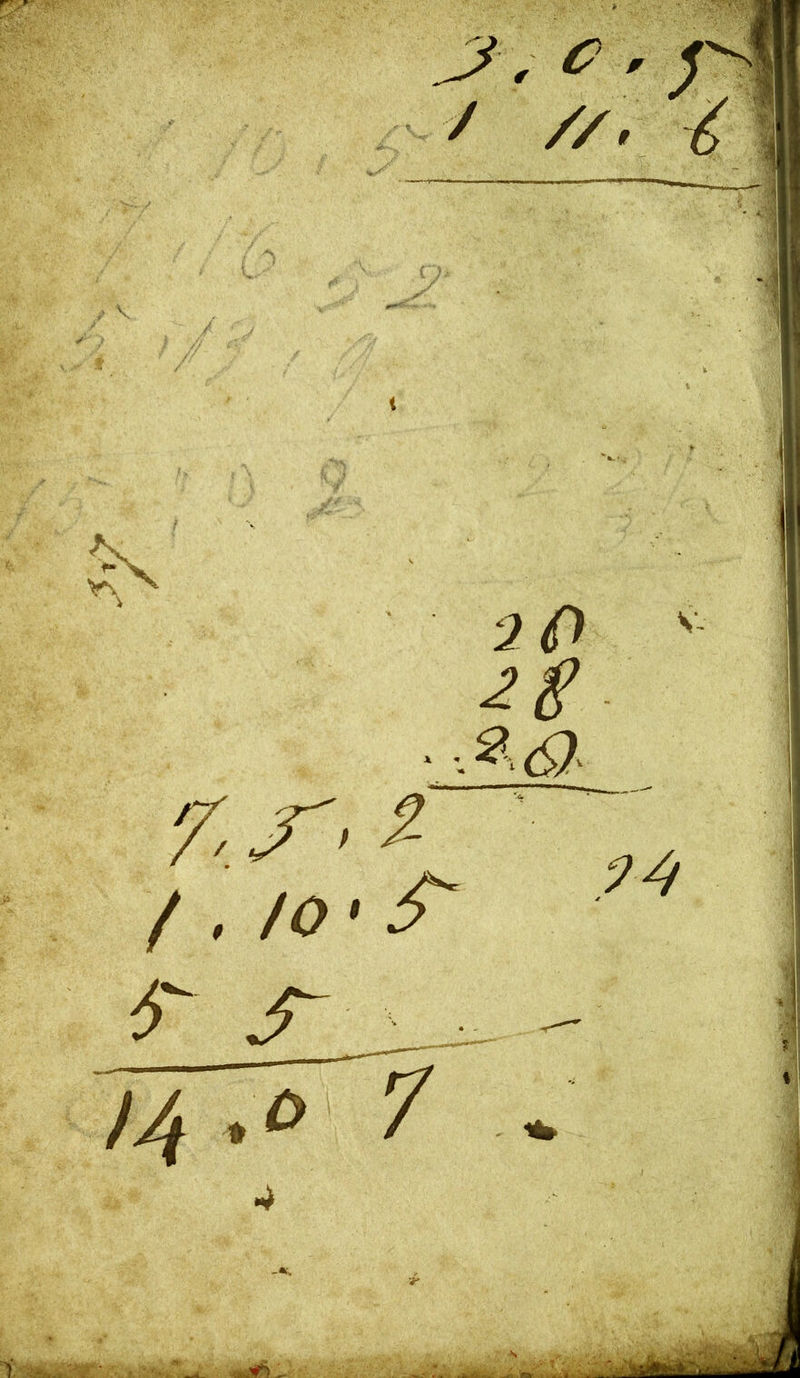 3. 0. 5
1 11. 6
1 10. 5
7. 16
5 2
5. 13. 9
15 0 2
20
28
20
7. 5. 2
24
1. 10. 5
5 5
14. 0 7